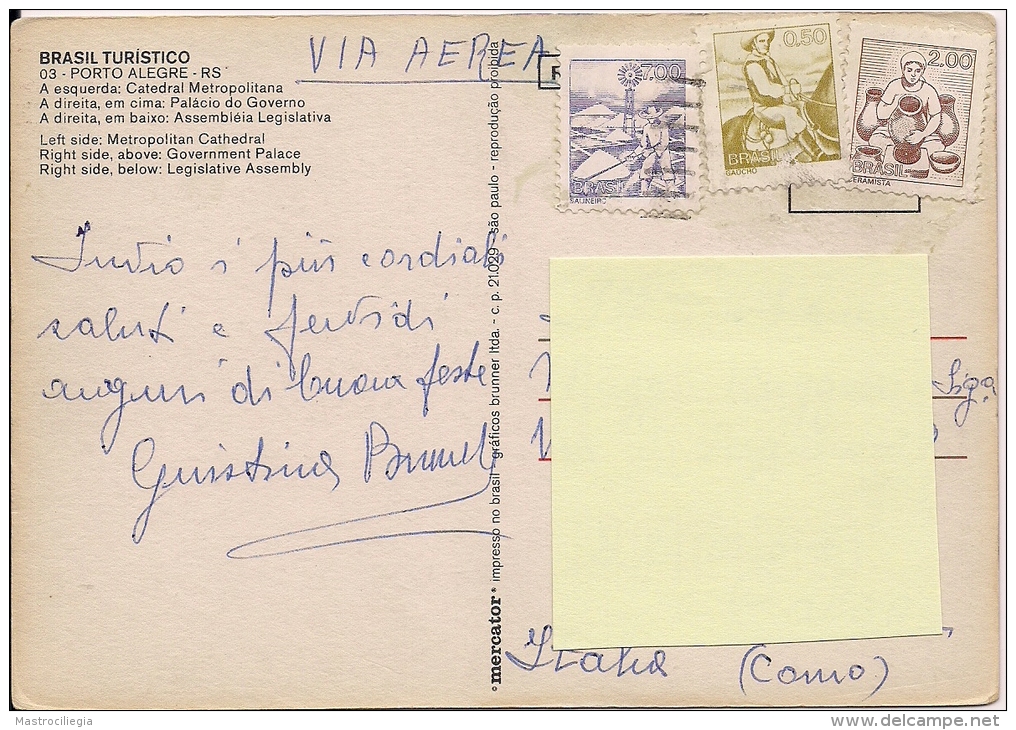 BRASIL TURÍSTICO
03 - PORTO ALEGRE - RS
A esquerda: Catedral Metropolitana
A direita, em cima: Palácio do Governo
A direita, em baixo: Assembléia Legislativa
Left side: Metropolitan Cathedral
Right side, above: Government Palace
Right side, below: Legislative Assembly
VIA AEREA
7.00
BRASIL
SALINEIRO
0.50
BRASIL
GAUCHO
2.00
BRASIL
ERAMISTA
Invio i più cordiali
saluti e fervidi
auguri di buone feste
mercator impresso no brasil - gráficos brunner ltda. - c. p. 21.029 - são paulo - reprodução proibida
Sig.a
Italia (Como)
Mastrociliegia
www.delcampe.net